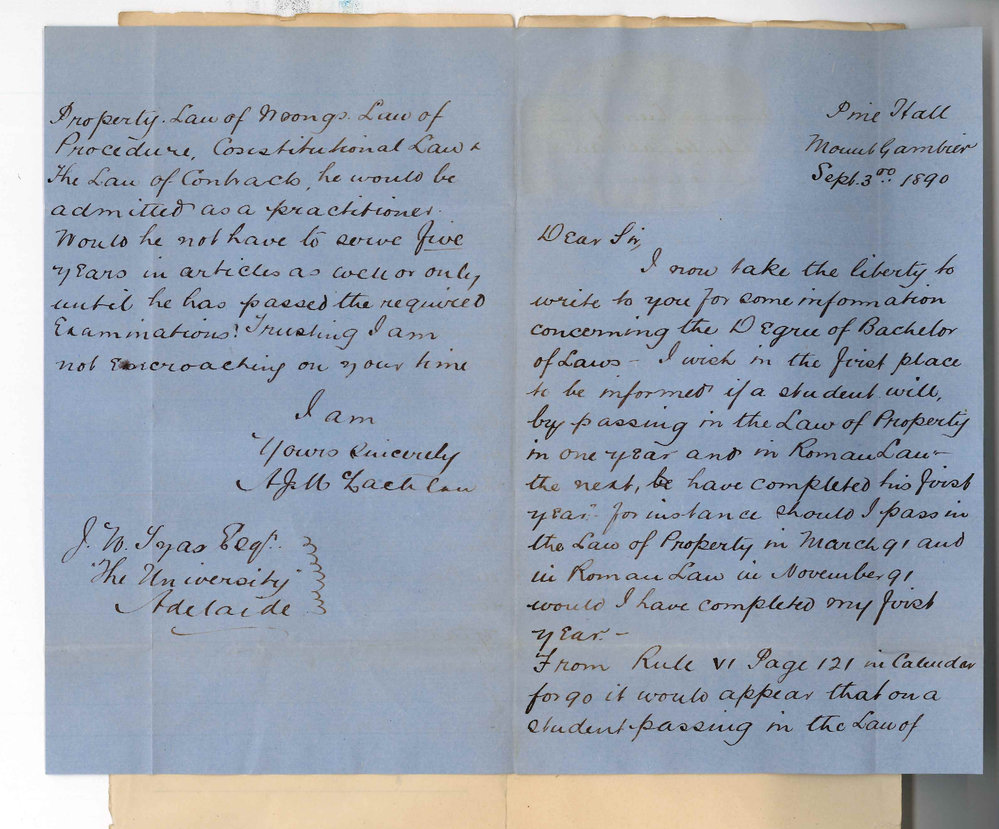 Pine Hall
Mount Gambier
Sept. 3rd 1890
Dear Sir,
I now take the liberty to
write to you for some information
concerning the Degree of Bachelor
of Laws – I wish in the first place
to be informed if a student will,
by passing in the Law of Property
in one year and in Roman Law –
the next, be have completed his first
year. For instance should I pass in
the Law of Property in March 91 and
in Roman Law in November 91
would I have completed my first
year. –
From Rule VI Page 121 in Calendar
for 90 it would appear that on a
student passing in the Law of
Property. Law of Wrongs. Law of
Procedure, Constitutional Law &
the Law of Contracts, he would be
admitted as a practitioner.
Would he not have to serve five
years in articles as well or only
until he has passed the required
Examinations? Trusting I am
not encroaching on your time
I am
Yours Sincerely
A J McLachlan
J. W. Tyas Esqr.
The University
Adelaide